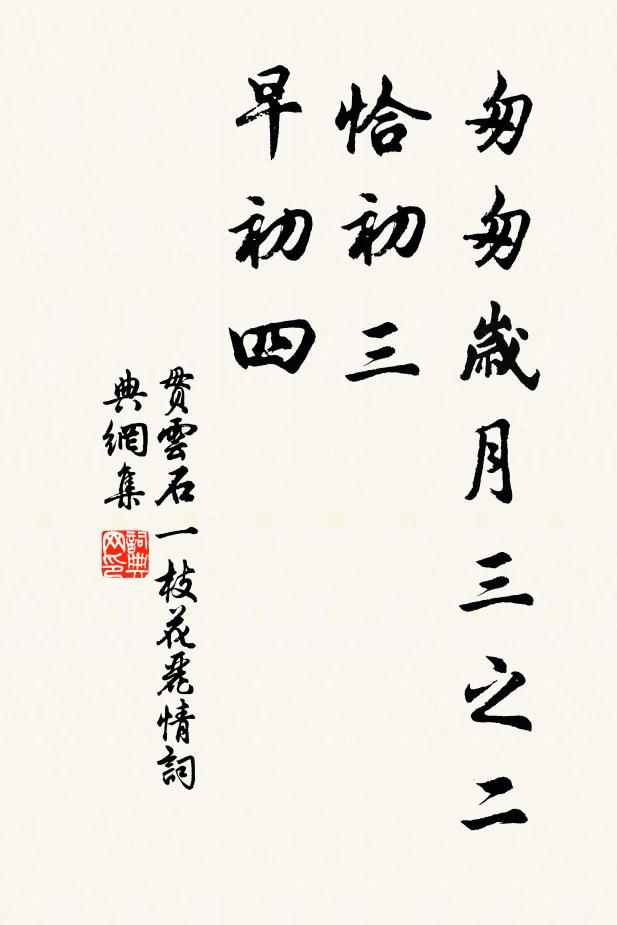 匆匆歲月三之二
恰初三
早初四
貫雲石一枝花麗情詞
典網集
詞典网印